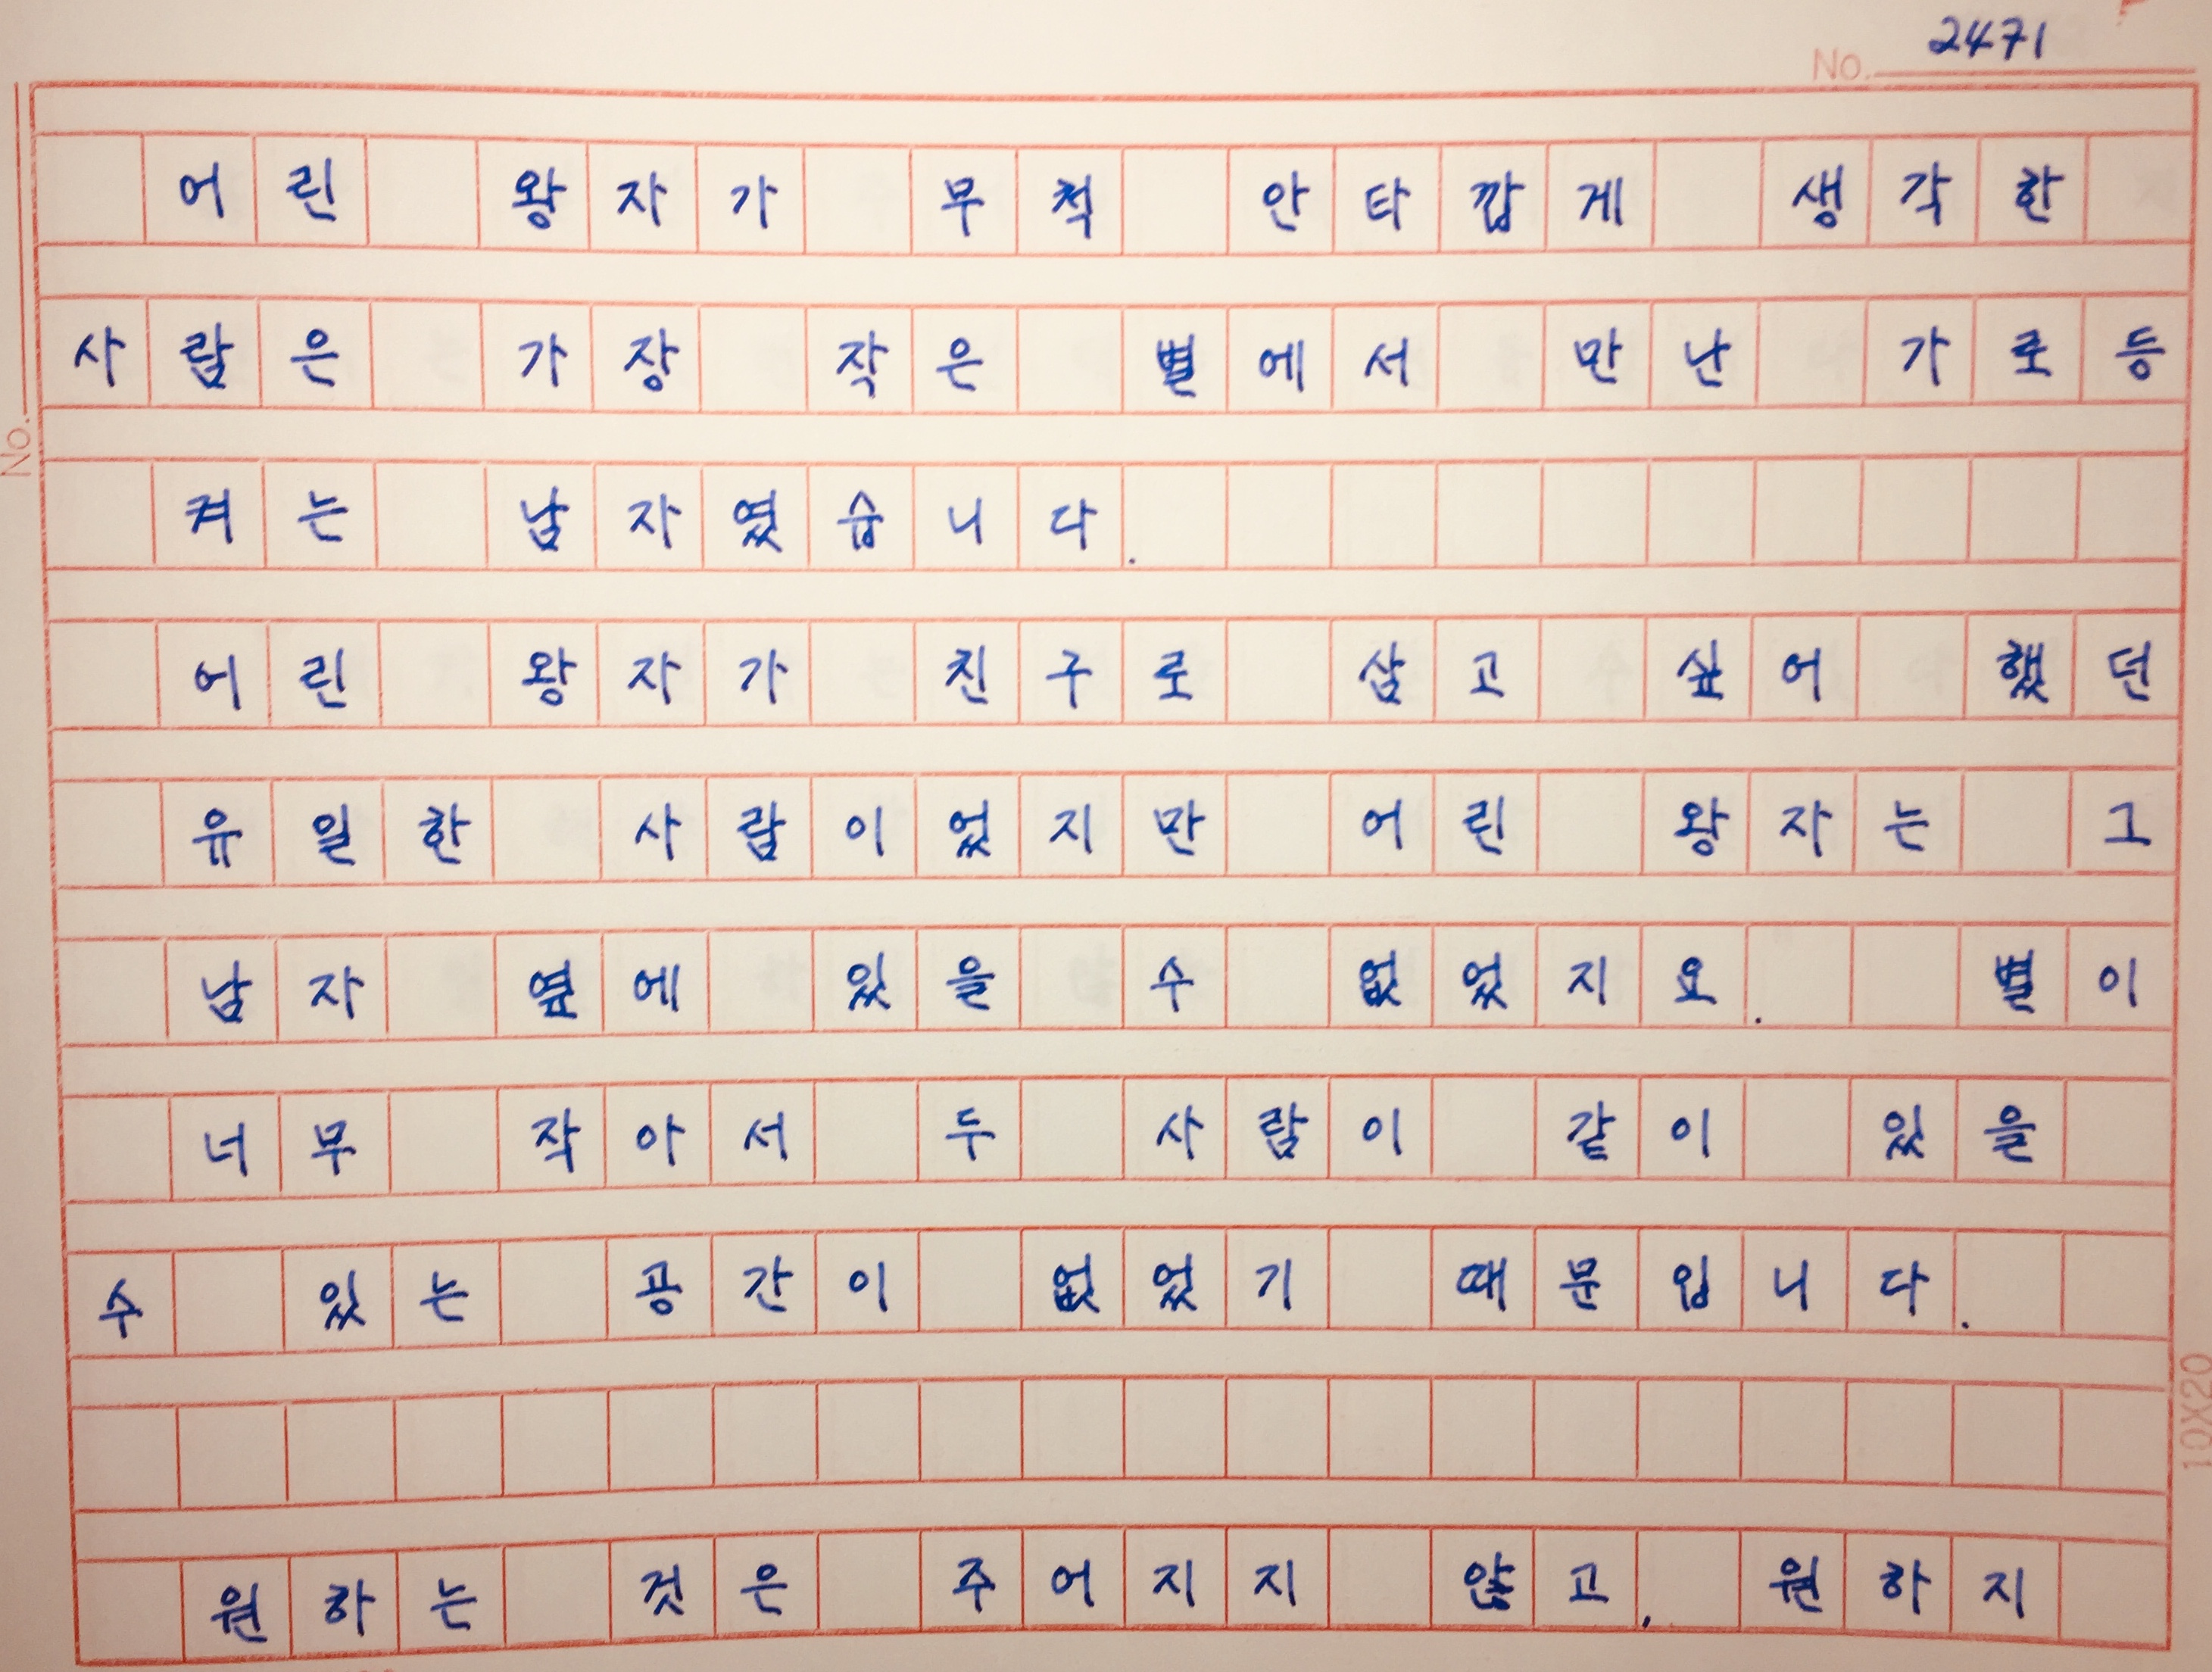 No. 2471
어린 왕자가 무척 안타깝게 생각한
사람은 가장 작은 별에서 만난 가로등
켜는 남자였습니다.
어린 왕자가 친구로 삼고 싶어 했던
유일한 사람이었지만 어린 왕자는 그
남자 옆에 있을 수 없었지요. 별이
너무 작아서 두 사람이 같이 있을
수 있는 공간이 없었기 때문입니다.
원하는 것은 주어지지 않고, 원하지
No.
10X20